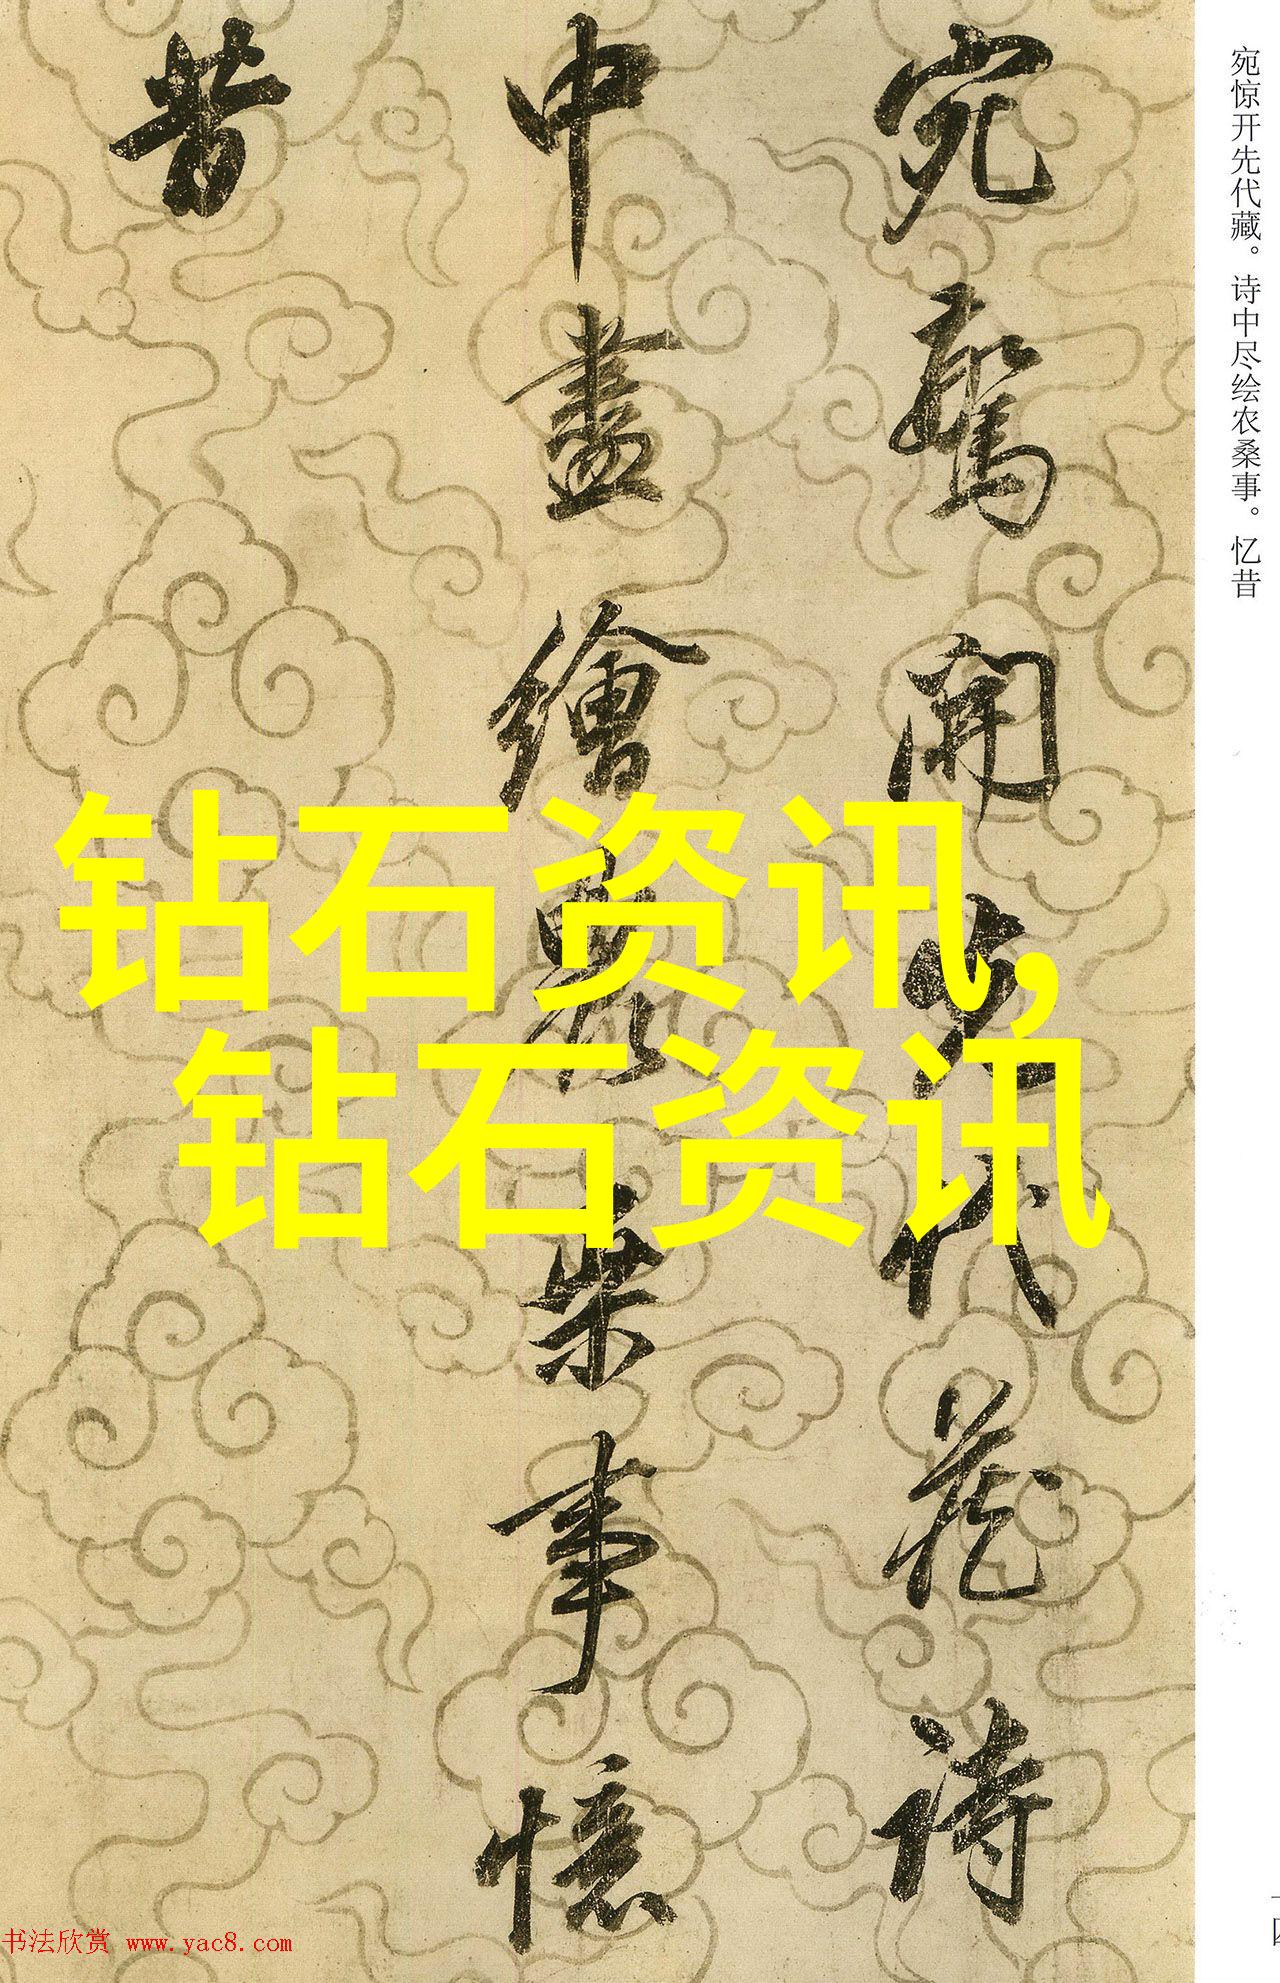 宛驚開先代藏詩
中盡繪農桑事憶
昔
宛惊开先代藏。诗中尽绘农桑事。忆昔
钻石资讯,
钻石资讯
书法欣赏 www.yac8.com